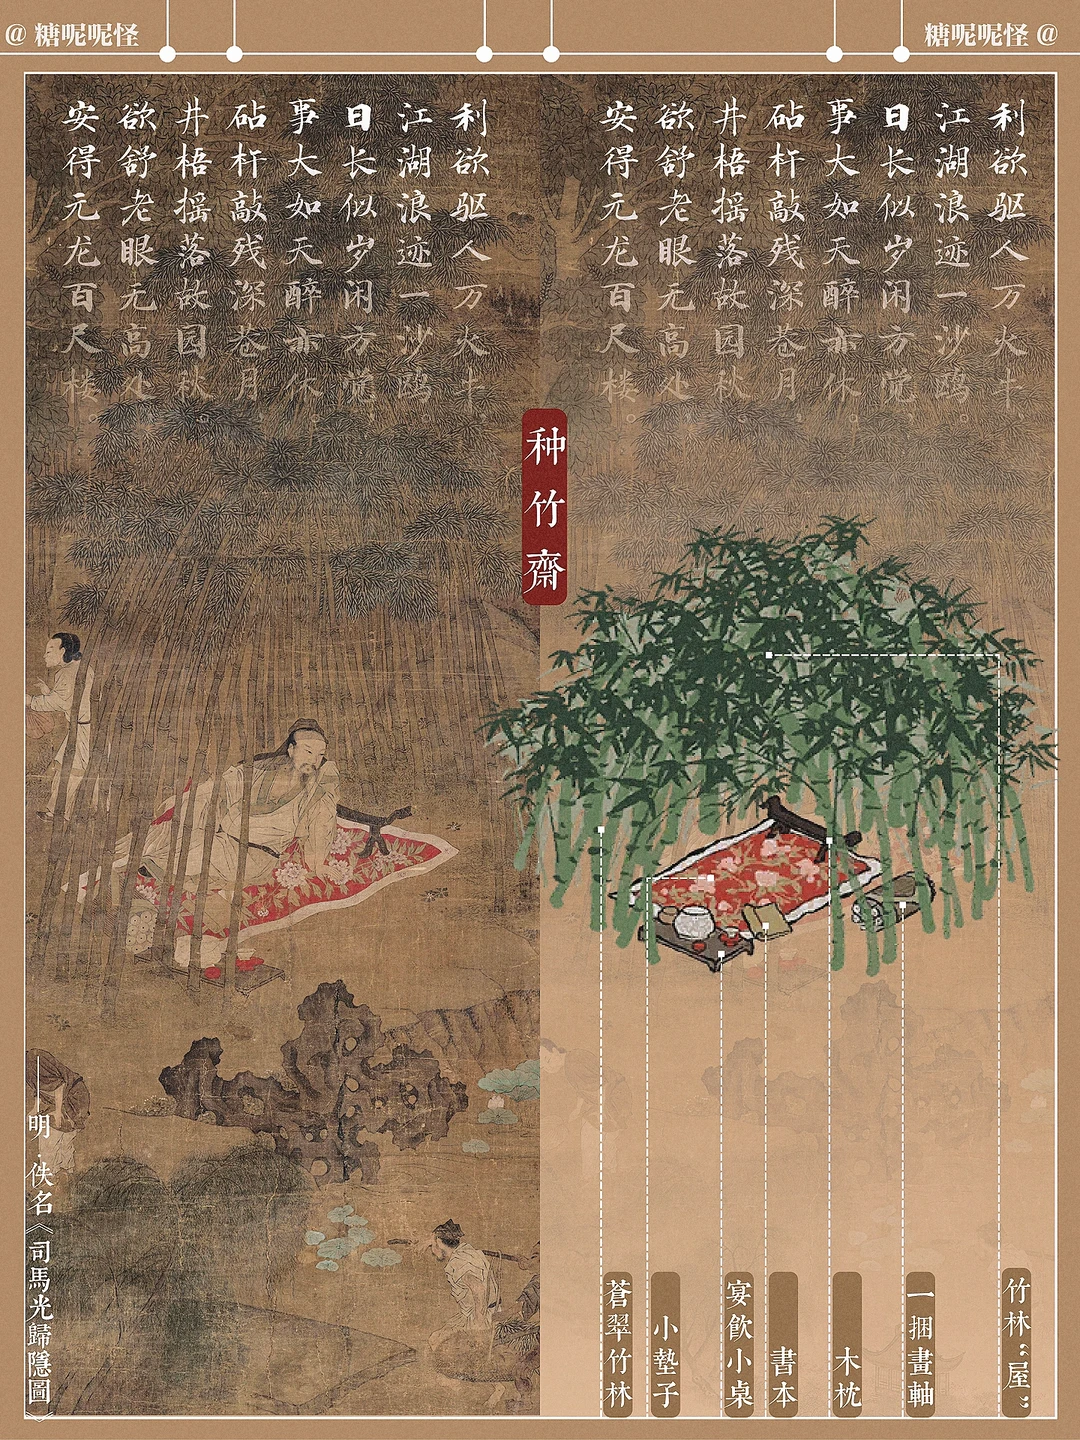 @ 糖呢呢怪
糖呢呢怪 @
利欲驱人万火牛，
江湖浪迹一沙鸥。
日长似岁闲方觉，
事大如天醉亦休。
砧杵敲残深巷月，
井梧摇落故园秋。
欲舒老眼无高处，
安得元龙百尺楼。
利欲驱人万火牛，
江湖浪迹一沙鸥。
日长似岁闲方觉，
事大如天醉亦休。
砧杵敲残深巷月，
井梧摇落故园秋。
欲舒老眼无高处，
安得元龙百尺楼。
种竹齋
——明·佚名《司馬光歸隱圖》
竹林“屋”
一捆畫軸
木枕
書本
宴飲小桌
小墊子
蒼翠竹林